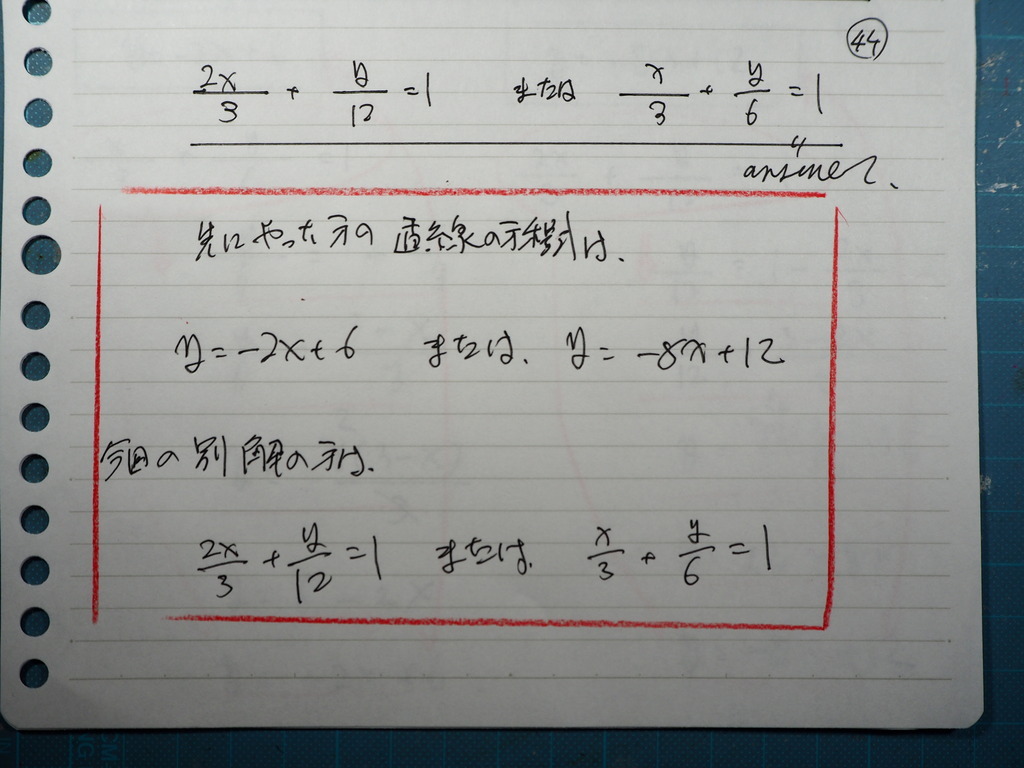 44
2x/3 + y/12 = 1 または x/3 + y/6 = 1
answer.
先にやった方の直線の方程式は、
y = -2x + 6 または、 y = -8x + 12
今回の別解の方は、
2x/3 + y/12 = 1 または、 x/3 + y/6 = 1